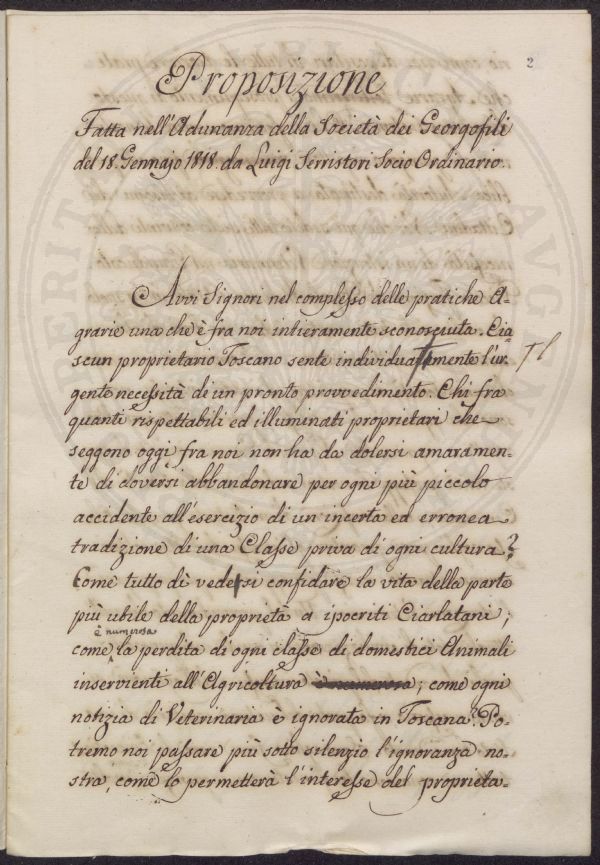 2
Proposizione
Fatta nell'Adunanza della Società dei Georgofili
del 18. Gennajo 1818. da Luigi Serristori Socio Ordinario.
Avvi Signori nel complesso delle pratiche A-
grarie una che è fra noi intieramente sconosciuta. Cia=
scun proprietario Toscano sente individualmente l'ur= l
gente necessità di un pronto provvedimento. Chi fra
quanti rispettabili ed illuminati proprietari che
seggono oggi fra noi non ha da dolersi amaramen=
te di doversi abbandonare per ogni più piccolo
accidente all'esercizio di un incerta ed erronea
tradizione di una Classe priva di ogni cultura?
Come tutto dì vedesi confidare la vita della parte
più utile della proprietà a ipocriti Ciarlatani;
è numerosa
come la perdita di ogni classe di domestici Animali
inservienti all'Agricoltura è numerosa; come ogni
notizia di Veterinaria è ignorata in Toscana? Po=
tremo noi passare più sotto silenzio l'ignoranza no=
stra, come lo permetterà l'interesse del proprieta=